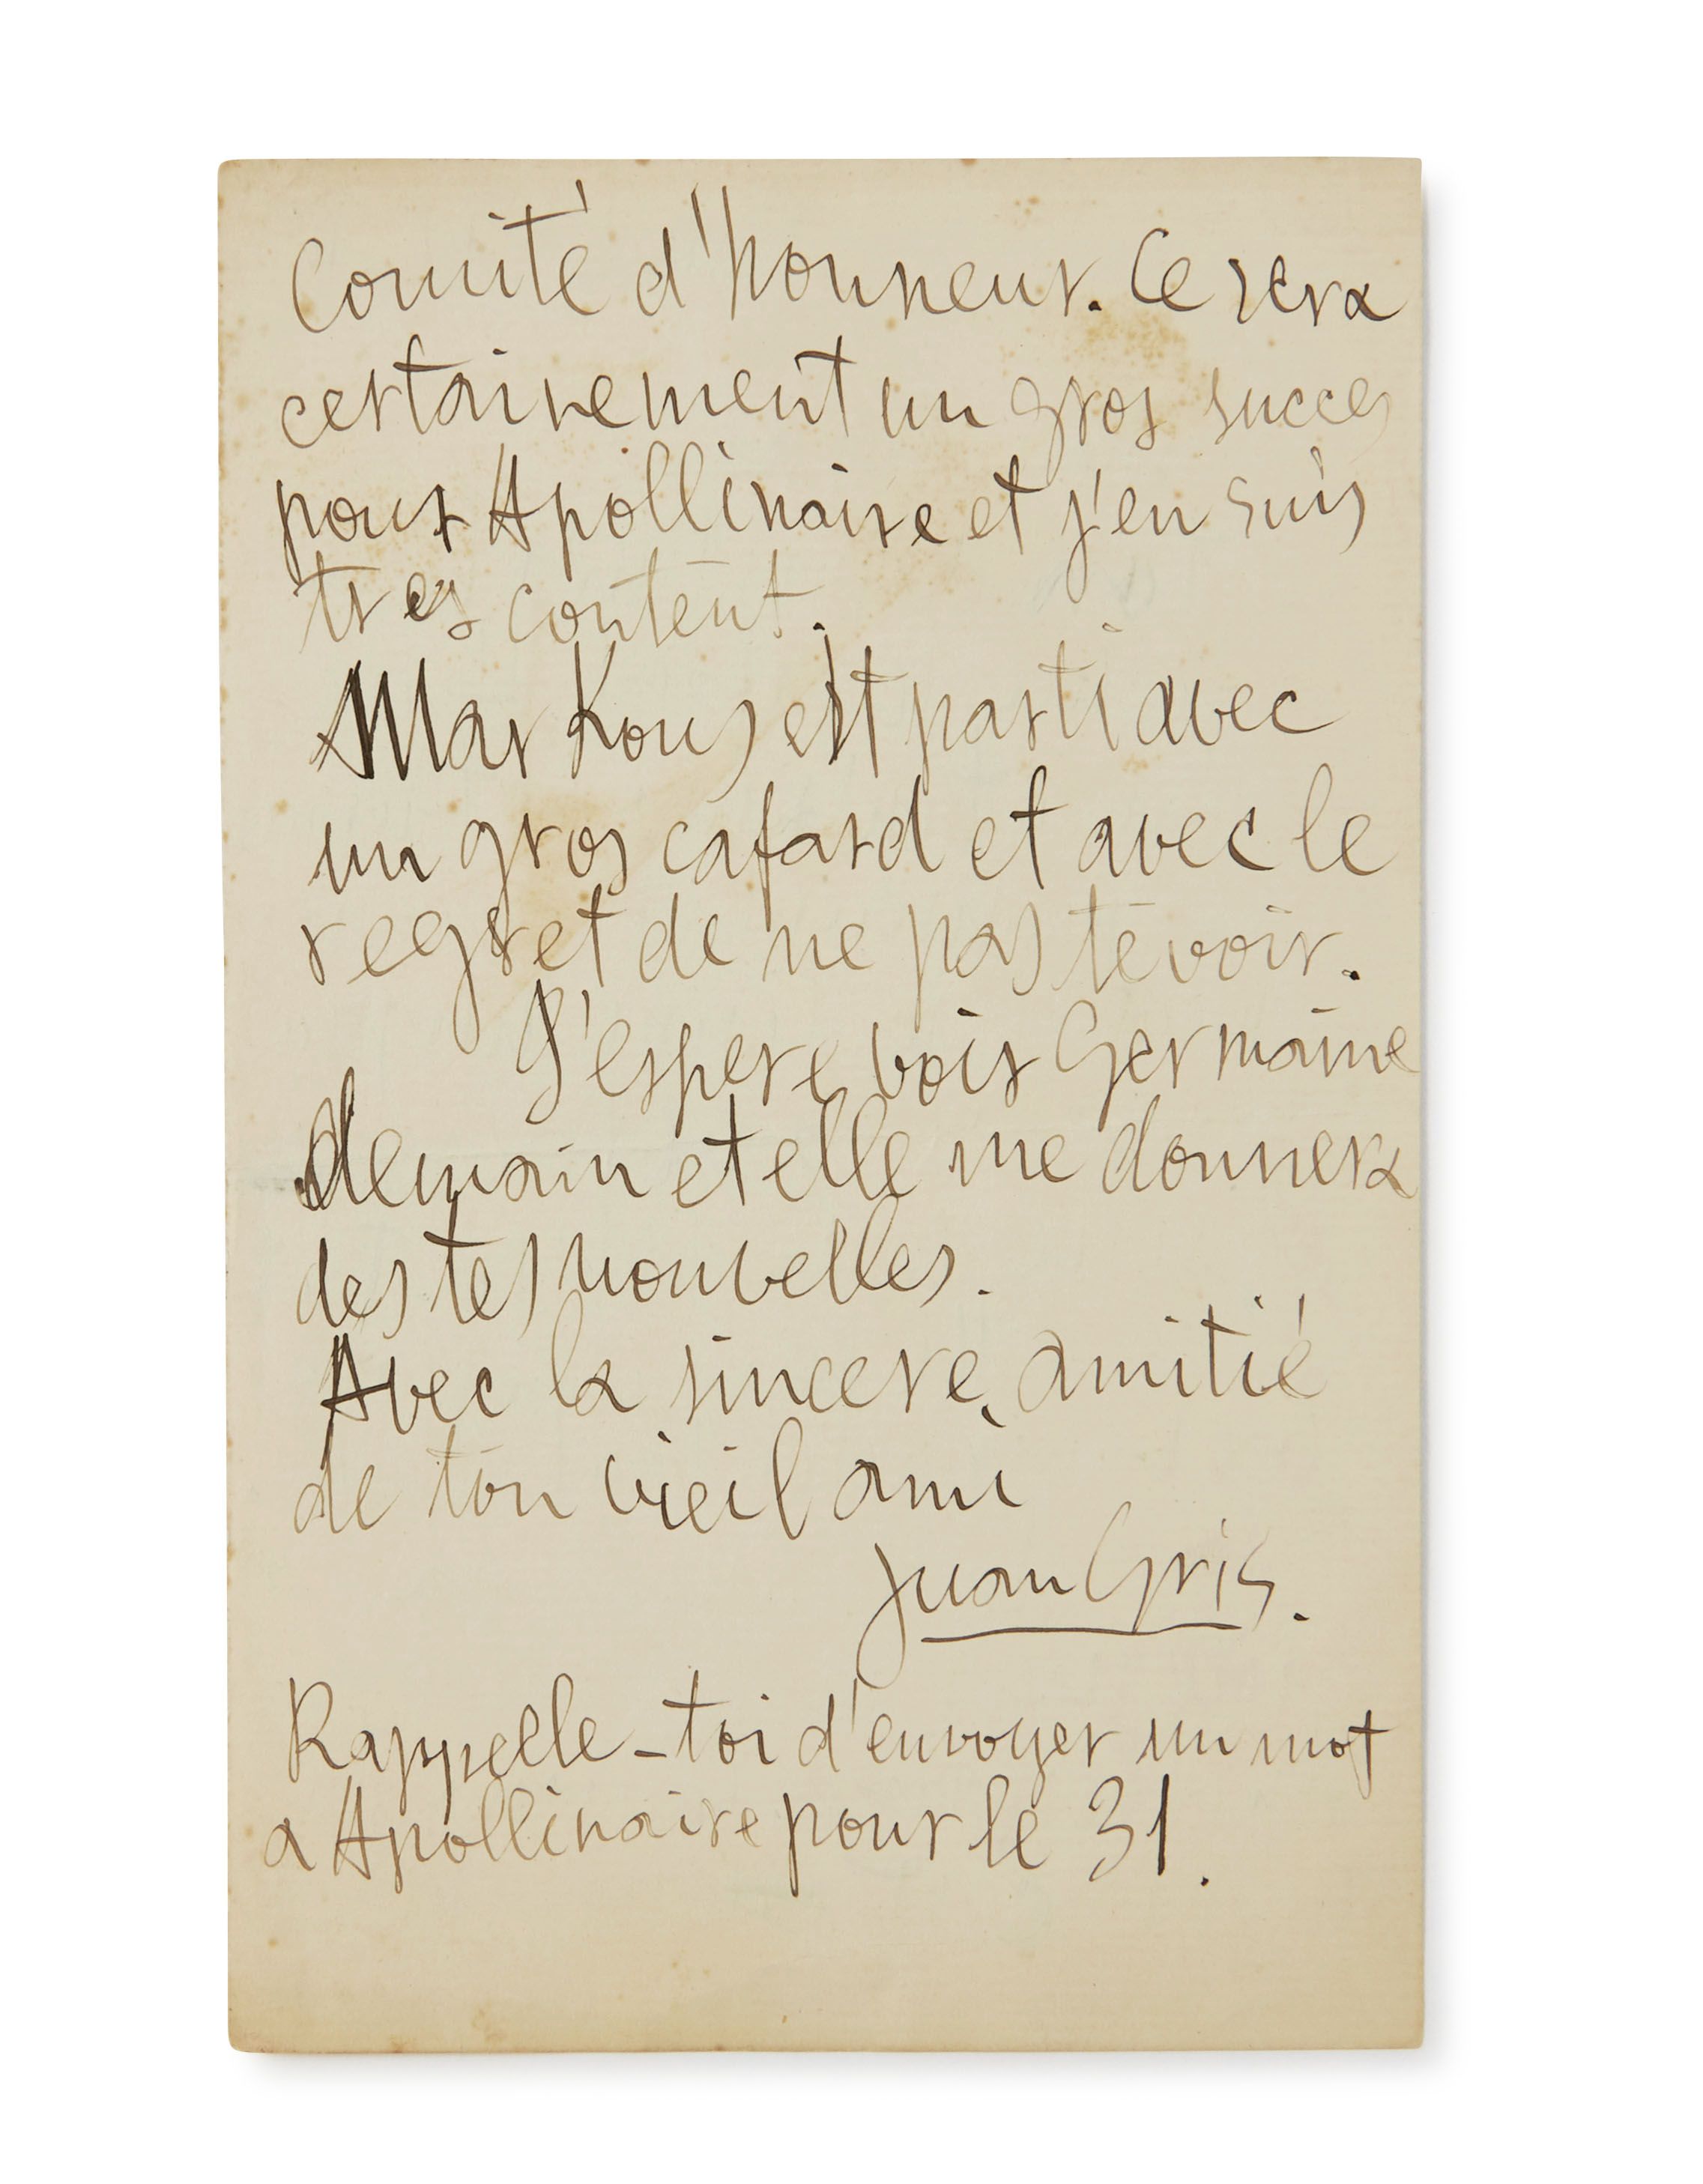 Comité d'honneur. Ce sera
certainement un gros succes
pour Apollinaire et j'en suis
tres content.
Markous est parti avec
un gros cafard et avec le
regret de ne pas te voir.
J'espere voir Germaine
demain et elle me donnera
des tes nouvelles.
Avec la sincere amitié
de ton vieil ami
Juan Gris.
Rappelle-toi d'envoyer un mot
a Apollinaire pour le 31.